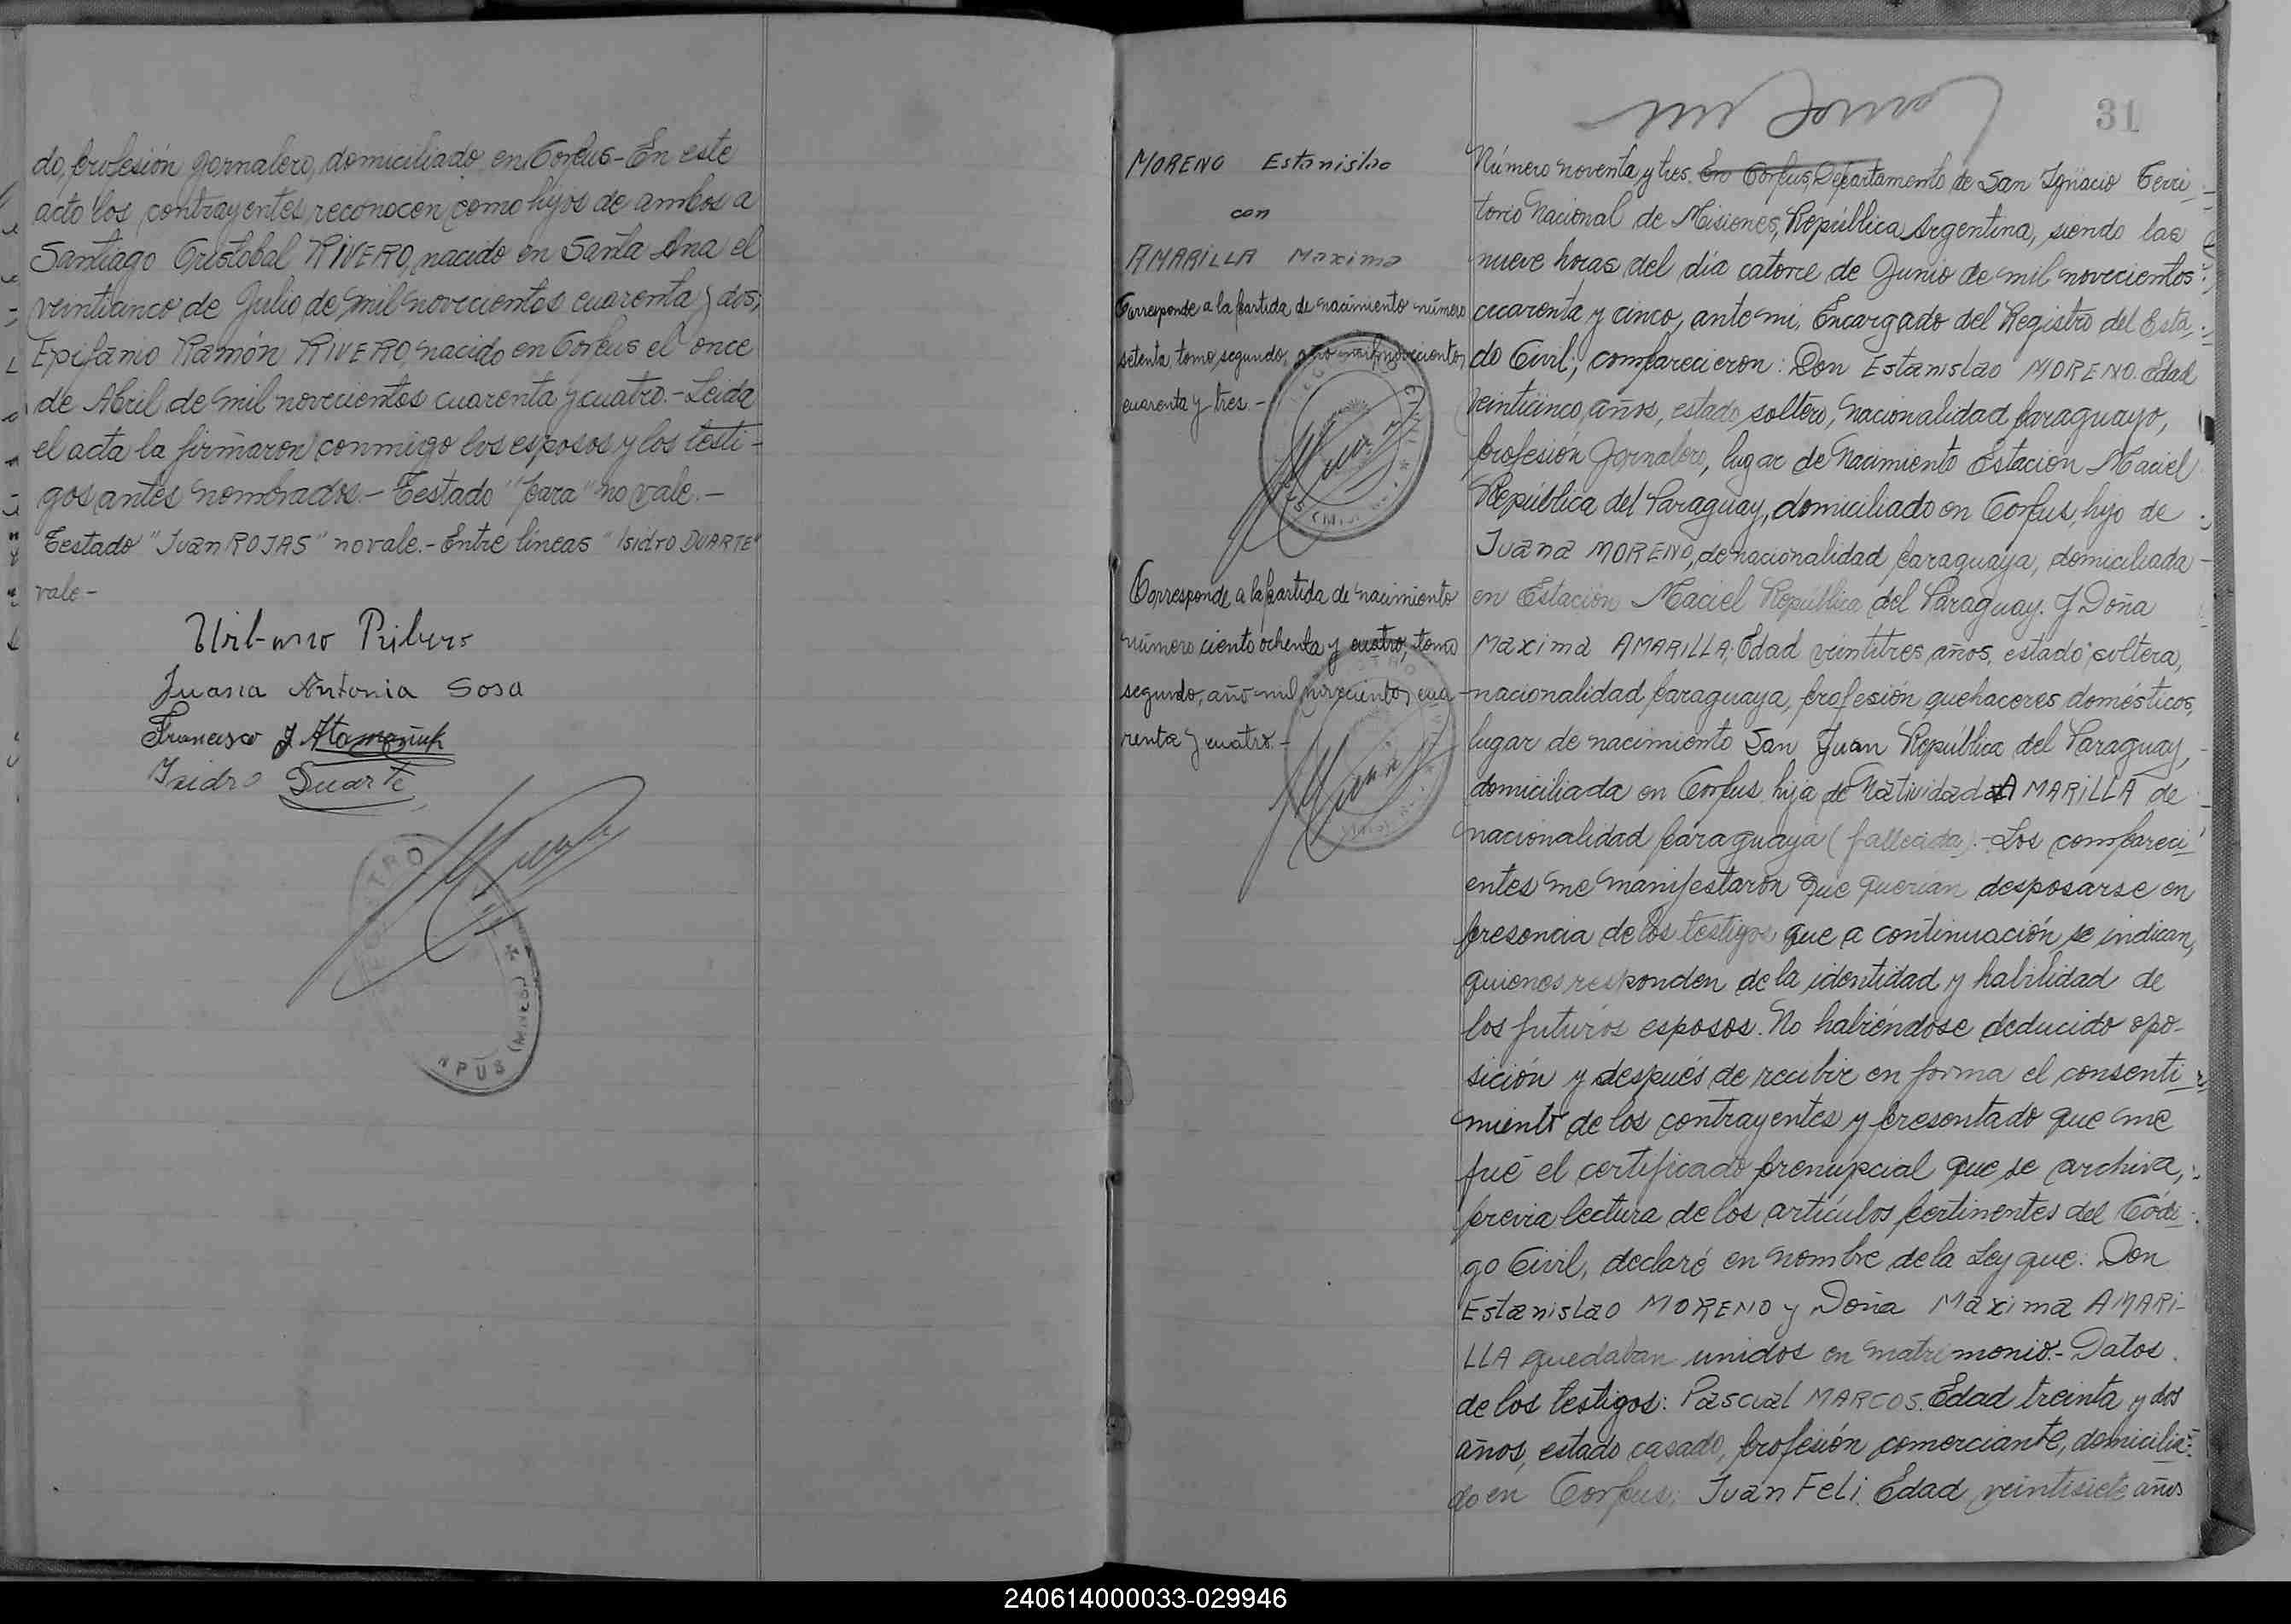 do, profesión jornalero, domiciliado en Corpus- En este
acto los contrayentes reconocen como hijos de ambos a
Santiago Cristobal RIVERO, nacido en Santa Ana el
veinticinco de Julio de mil novecientos cuarenta y dos,
Epifanio Ramón RIVERO, nacido en Corpus el once
de Abril de mil novecientos cuarenta y cuatro.- Leida
el acta la firmaron conmigo los esposos y los testi-
gos antes nombrados.- Testado "para" no vale.-
Testado "Juan ROJAS" no vale.- Entre líneas "Isidro DUARTE"
vale-
Urbano Ribero
Juana Antonia Sosa
Francisco J Atamañuk
Isidro Duarte
31
MORENO Estanislao
con
AMARILLA Maxima
Corresponde a la partida de nacimiento número
setenta, tomo segundo, año mil novecientos
cuarenta y tres.-
Corresponde a la partida de nacimiento
número ciento ochenta y cuatro, tomo
segundo, año mil novecientos cua
renta y cuatro.-
Número noventa y tres. En Corpus, Departamento de San Ignacio Terri
torio Nacional de Misiones, República Argentina, siendo las
nueve horas del día catorce de Junio de mil novecientos
cuarenta y cinco, ante mi, Encargado del Registro del Esta
do Civil, comparecieron: Don Estanislao MORENO. Edad
veinticinco años, estado soltero, nacionalidad paraguayo,
profesión Jornalero, lugar de Nacimiento Estación Maciel
República del Paraguay, domiciliado en Corpus, hijo de
Juana MORENO, de nacionalidad paraguaya, domiciliada
en Estación Maciel República del Paraguay. Y Doña
Maxima AMARILLA, Edad veintitres años, estado soltera,
nacionalidad paraguaya, profesión quehaceres domésticos,
lugar de nacimiento San Juan República del Paraguay,
domiciliada en Corpus hija de Natividad AMARILLA de
nacionalidad paraguaya (fallecida).- Los compareci
entes me manifestaron que querían desposarse en
presencia de los testigos que a continuación se indican,
quienes responden de la identidad y habilidad de
los futuros esposos. No habiéndose deducido opo-
sición y después de recibir en forma el consenti
miento de los contrayentes y presentado que me
fué el certificado prenupcial que se archiva,
previa lectura de los artículos pertinentes del Códi
go Civil, declaré en nombre de la Ley que: Don
Estanislao MORENO y Doña Maxima AMARI-
LLA quedaban unidos en matrimonio.- Datos
de los testigos: Pascual MARCOS. Edad treinta y dos
años, estado casado, profesión comerciante, domicilia
do en Corpus; Juan Feli. Edad veintisiete años
240614000033-029946